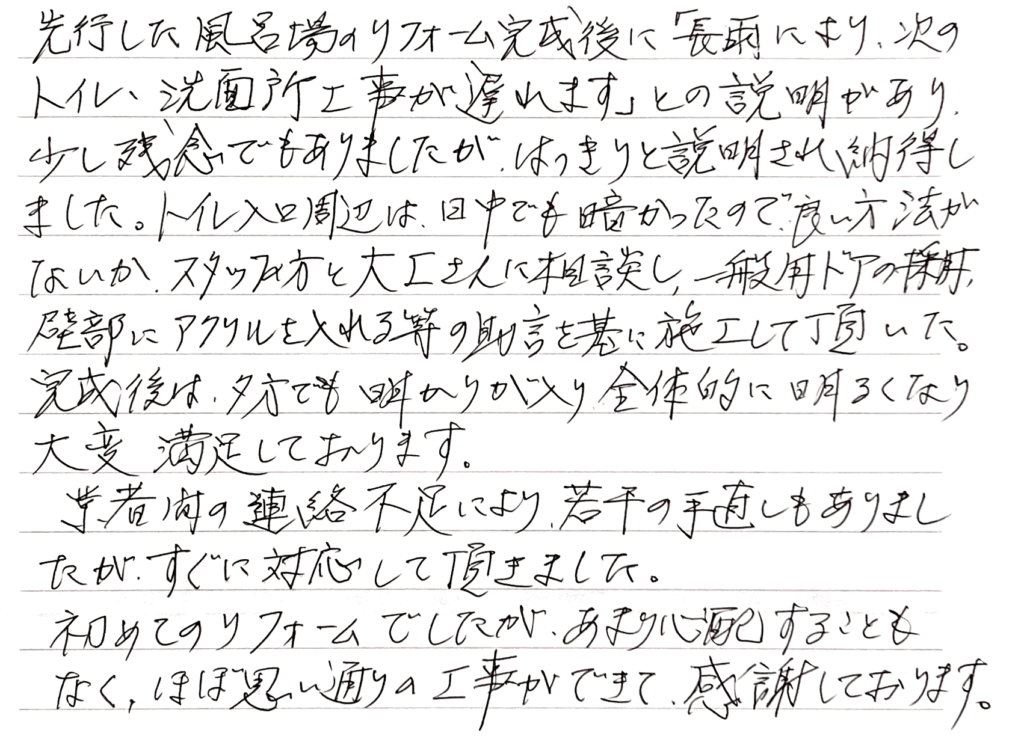 先行した風呂場のリフォーム完成後に「長雨により、次の
トイレ、洗面所工事が遅れます」との説明があり、
少し残念でもありましたが、はっきりと説明され納得し
ました。トイレ入口周辺は、日中でも暗かったので、良い方法が
ないか、スタッフの方と大工さんに相談し、一般用ドアの採用、
壁部にアクリルを入れる等の助言を基に施工して頂いた。
完成後は、夕方でも明かりが入り全体的に明るくなり
大変満足しております。
業者間の連絡不足により、若干の手直しもありまし
たが、すぐに対応して頂きました。
初めてのリフォームでしたが、あまり心配することも
なく、ほぼ思い通りの工事ができて、感謝しております。